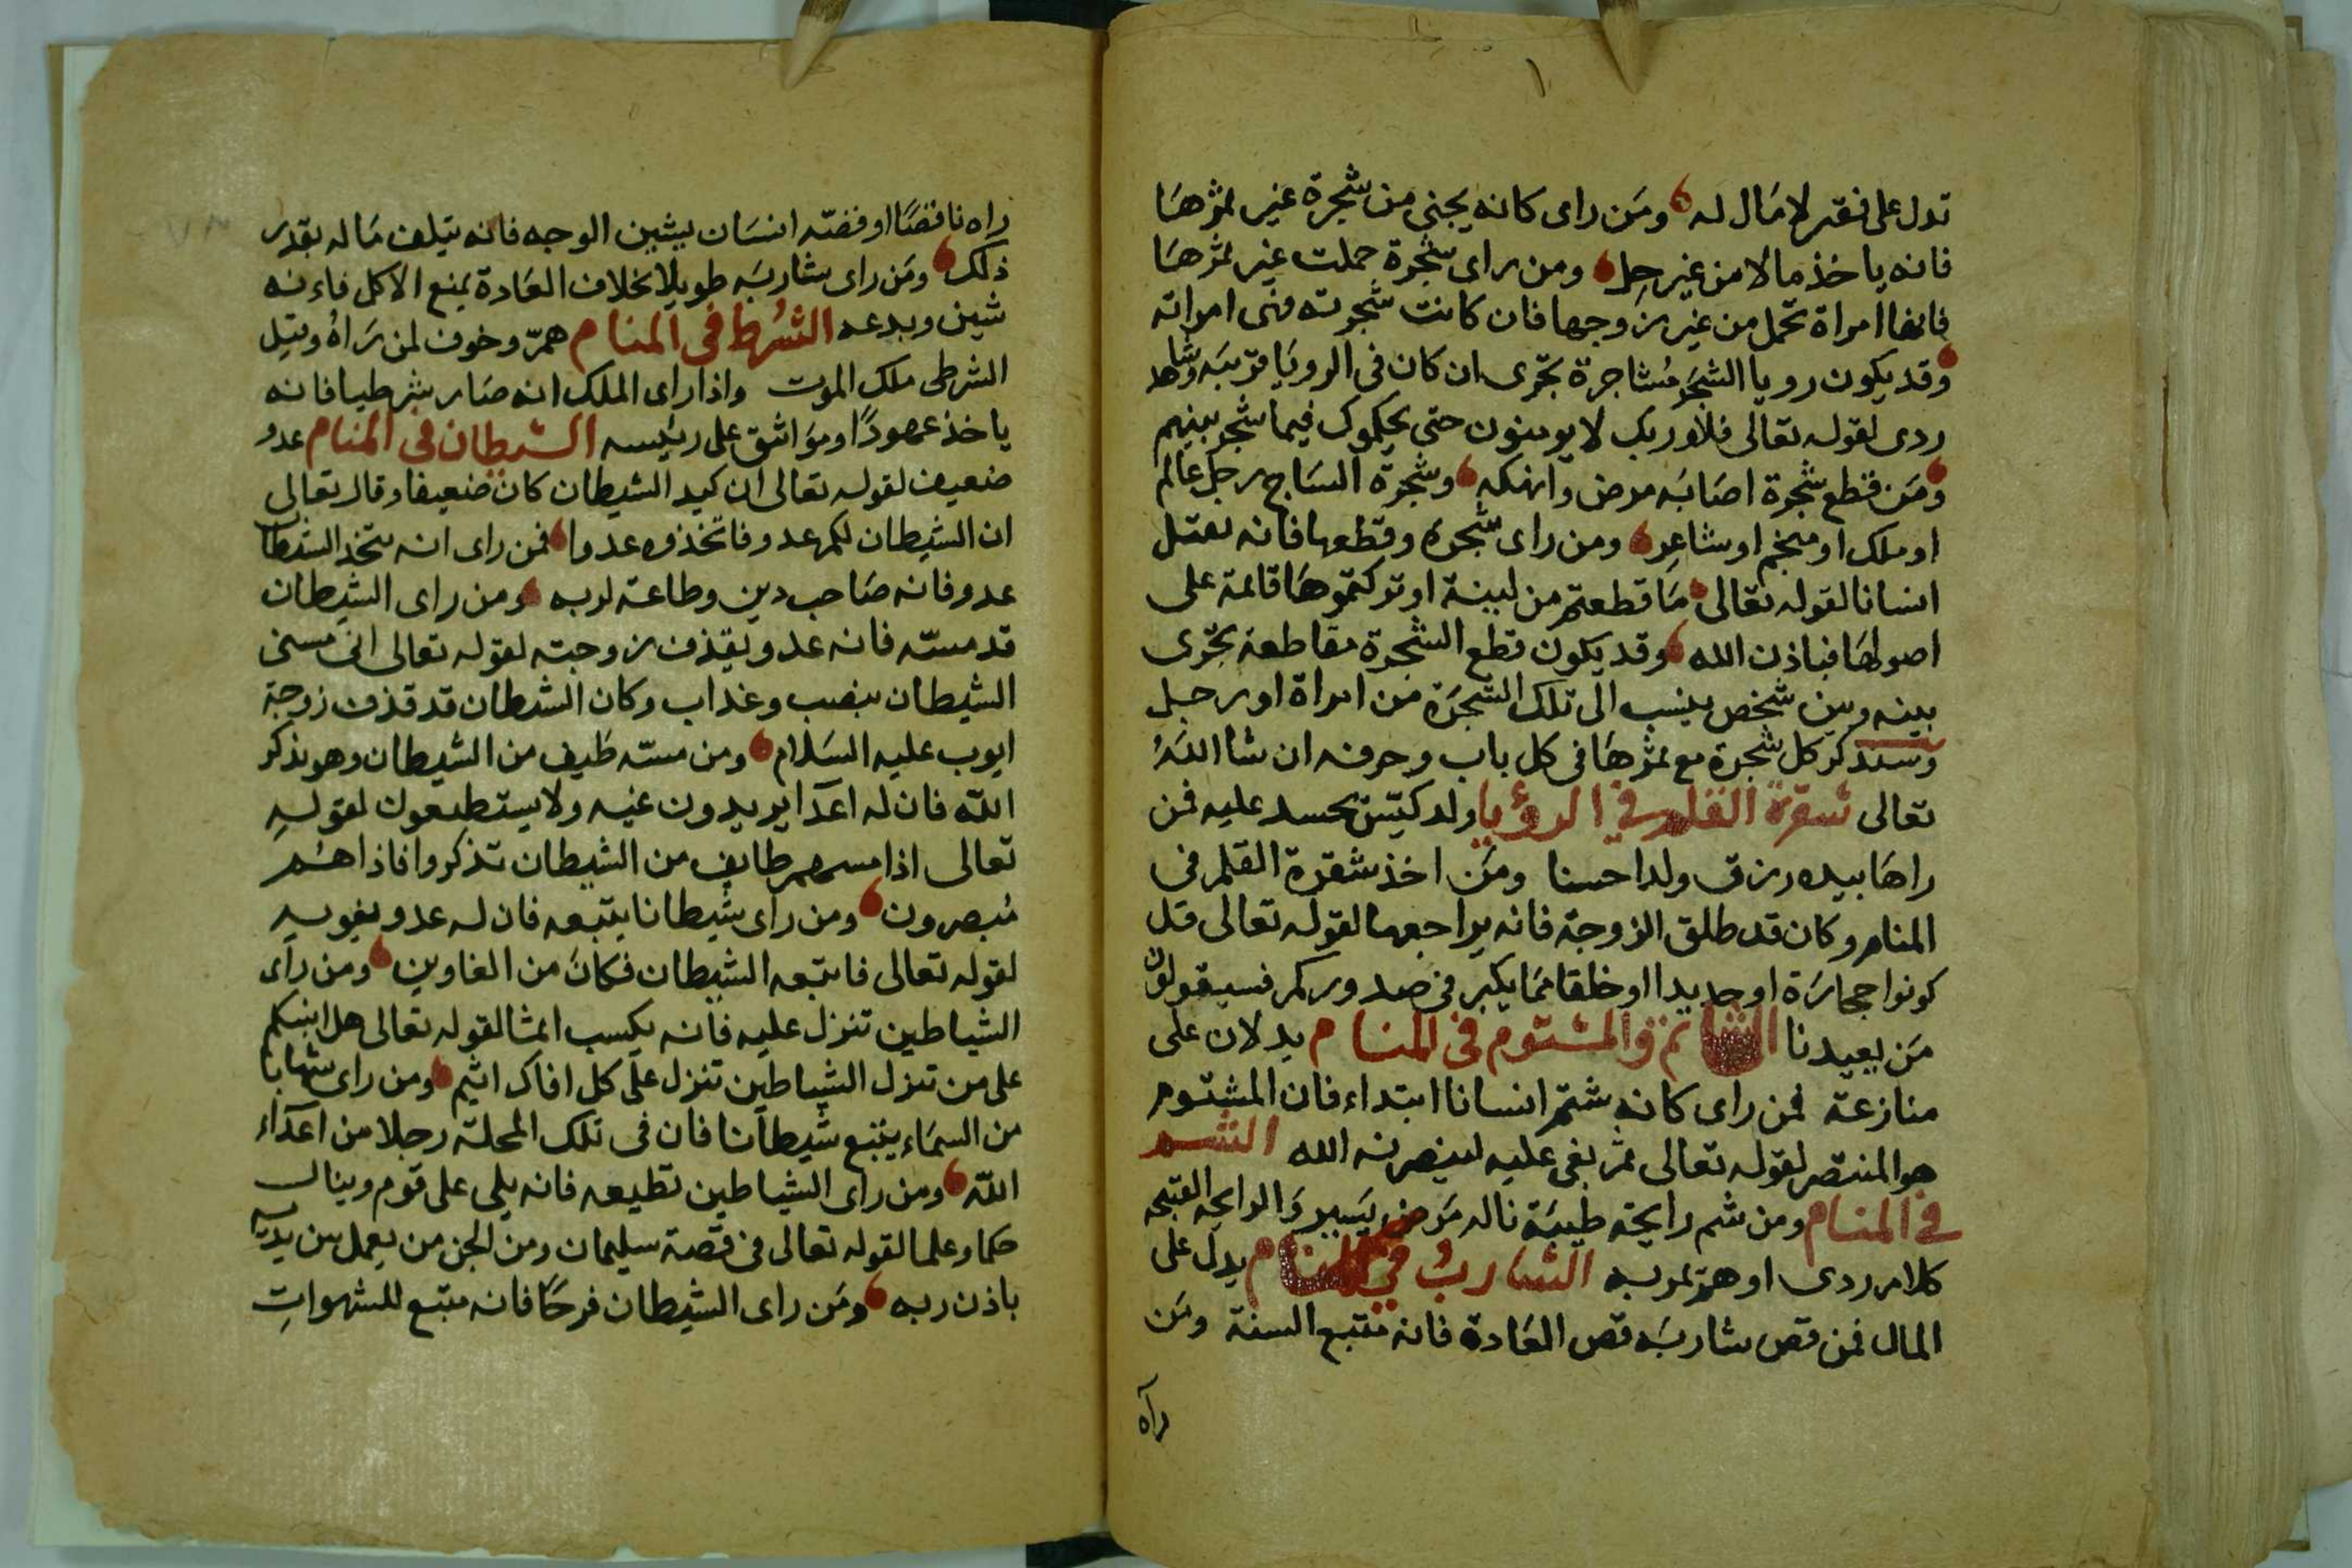 تدل على فقير لا مال له ومن راى كانه يجنى من شجرة غير ثمرها
فانه ياخذ مالا من غير حل ومن راى شجرة حملت غير ثمرها
فانها امراة تحمل من غير زوجها فان كانت شجرته فهى امراته
وقد يكون رويا الشجر مشاجرة تجرى ان كان فى الرويا قرينه وشاهد
ردى لقوله تعالى فلا وربك لا يومنون حتى يحكموك فيما شجر بينهم
ومن قطع شجرة اصابه مرض وانهكه وشجرة الساج رجل عالم
او ملك او منجم او شاعر ومن راى شجرة وقطعها فانه يقتل
انسانا لقوله تعالى ما قطعتم من لينة او تركتموها قائمة على
اصولها فباذن الله وقد يكون قطع الشجرة مقاطعة تجرى
بينه وبين شخص ينسب الى تلك الشجرة من امراة او رجل
وسنذكر كل شجرة مع ثمرها فى كل باب وحرفه ان شا الله
تعالى شقرة القلم في الرؤيا ولد كيّس يحسد عليه فمن
راها بيده رزق ولدا حسنا ومن اخذ شقرة القلم فى
المنام وكان قد طلق الزوجة فانه يراجعها لقوله تعالى قل
كونوا حجارة او حديدا او خلقا مما يكبر فى صدوركم فسيقولون
من يعيدنا الشاتم والمشتوم فى المنام يدلان على
منازعة فمن راى كانه شتم انسانا ابتداء فان المشتوم
هو المنتصر لقوله تعالى ثم بغى عليه لينصرنه الله الشم
في المنام ومن شم رايحة طيبة ناله مرض يسير والرايحه القبيحه
كلام ردى او همّ يمر به الشارب في المنام يدل على
المال فمن قص شاربه قص العادة فانه متبع السنة ومن
راه
راه ناقصا او قصّه انسان يشين الوجه فانه يتلف ماله بقدر
ذلك ومن راى شاربه طويلا بخلاف العادة يمنع الاكل فانه
شين وبدعه الشرط فى المنام همّ وخوف لمن راه وقيل
الشرطى ملك الموت واذا راى الملك انه صار شرطيا فانه
ياخذ عهودًا ومواثق على رئيسه الشيطان فى المنام عدو
ضعيف لقوله تعالى ان كيد الشيطان كان ضعيفا وقال تعالى
ان الشيطان لكم عدو فاتخذوه عدوا فمن راى انه يتخذ الشيطان
عدو فانه صاحب دين وطاعة لربه ومن راى الشيطان
قد مسّه فانه عدو يقذف زوجته لقوله تعالى انى مسنى
الشيطان بنصب وعذاب وكان الشيطان قد قذف زوجة
ايوب عليه السلام ومن مسّه طيف من الشيطان وهو يذكر
الله فان له اعدا يريدون غيه ولا يستطيعون لقوله
تعالى اذا مسهم طايف من الشيطان تذكروا فاذا هم
مبصرون ومن راى شيطانا يتبعه فان له عدو يغويه
لقوله تعالى فاتبعه الشيطان فكان من الغاوين ومن راى
الشياطين تنزل عليه فانه يكسب اثما لقوله تعالى هل انبئكم
على من تنزل الشياطين تنزل على كل افاك اثيم ومن راى شهابا
من السماء يتبع شيطانا فان فى تلك المحلة رجلا من اعداء
الله ومن راى الشياطين تطيعه فانه يلى على قوم وينال
حكما وعلما لقوله تعالى فى قصة سليمان ومن الجن من يعمل بين يديه
باذن ربه ومن راى الشيطان فرحا فانه متبع للشهوات